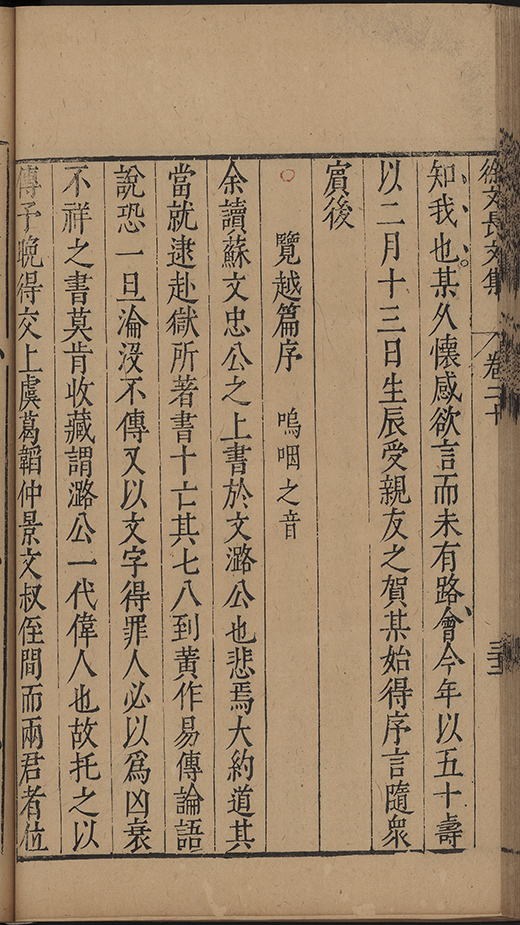 徐文長文集　卷二十　三十二
知我也某久懷感欲言而未有路會今年以五十壽
以二月十三日生辰受親友之賀某始得序言隨衆
賓後
○　覽越篇序　嗚咽之音
余讀蘇文忠公之上書於文潞公也悲焉大約道其
當就逮赴獄所著書十亡其七八到黄作易傳論語
說恐一旦淪沒不傳又以文字得罪人必以爲凶衰
不祥之書莫肯收藏謂潞公一代偉人也故托之以
傳予晚得交上虞葛韜仲景文叔侄間而兩君者位